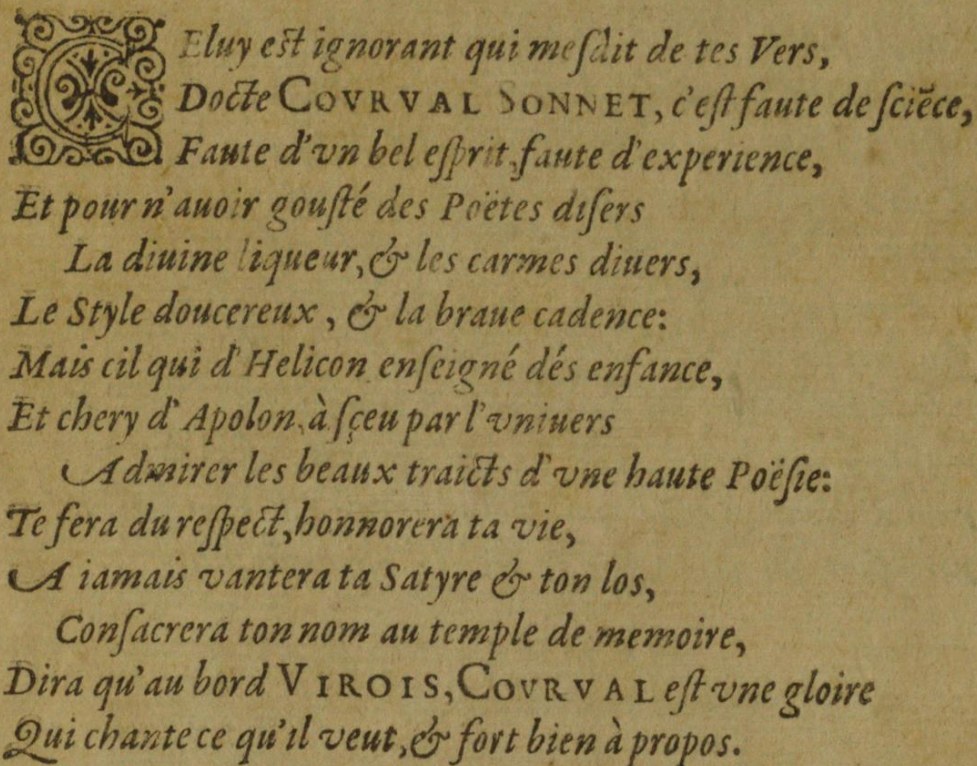 Celuy est ignorant qui mesdit de tes Vers,
Docte COVRVAL SONNET, c'est faute de sciẽce,
Faute d'vn bel esprit, faute d'experience,
Et pour n'auoir gousté des Poëtes disers
La diuine liqueur, & les carmes diuers,
Le Style doucereux, & la braue cadence:
Mais cil qui d'Helicon enseigné dés enfance,
Et chery d'Apolon, à sçeu par l'vniuers
Admirer les beaux traicts d'vne haute Poësie:
Te fera du respect, honnorera ta vie,
A iamais vantera ta Satyre & ton los,
Consacrera ton nom au temple de memoire,
Dira qu'au bord VIROIS, COVRVAL est vne gloire
Qui chante ce qu'il veut, & fort bien à propos.